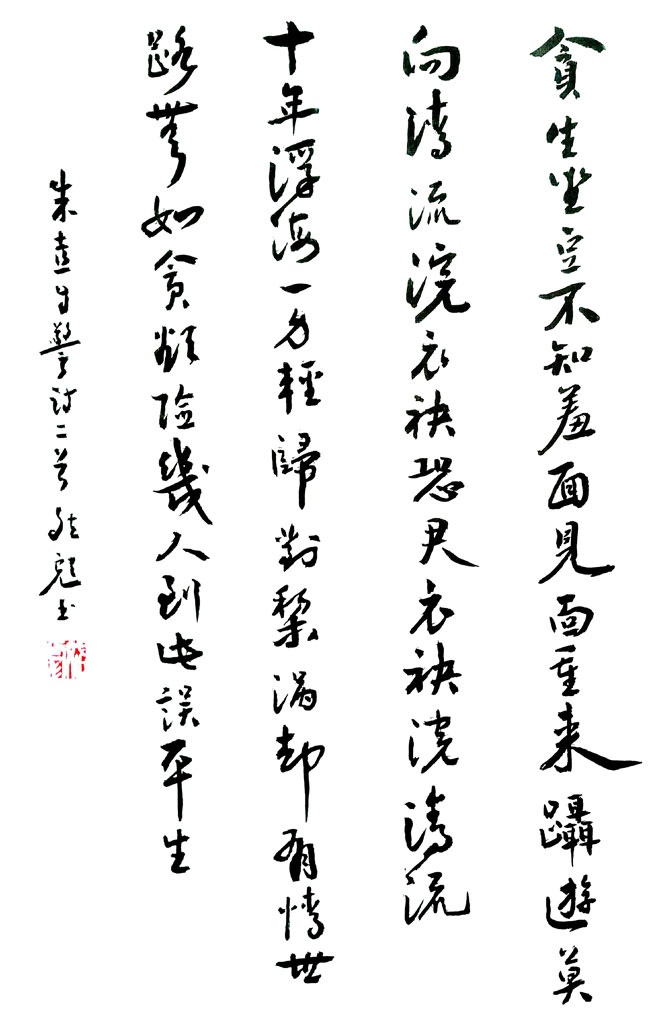 貪生坐豆不知羞面見面重来躡遊莫
向清流浣衣袂恐君衣袂浣清流
十年浮海一身輕歸對梨渦却有情世
路無如貪欲險幾人到此誤平生
朱熹自警詩二首書